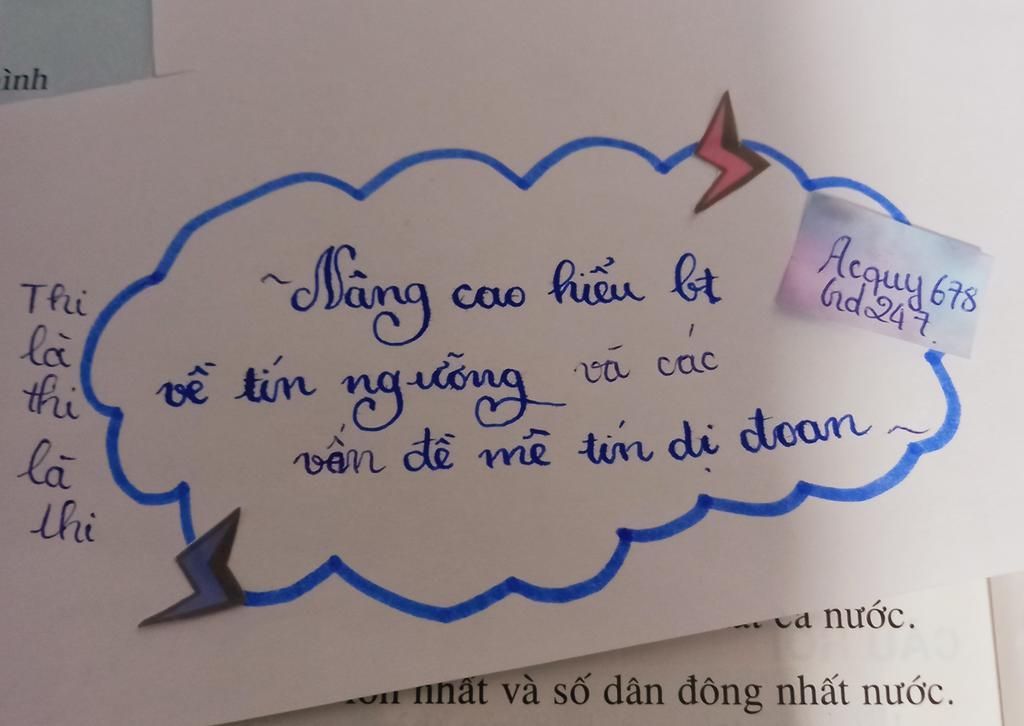 ình
~Nâng cao hiểu bt
về tín ngưỡng và các
vấn đề mê tín dị đoan ~
Acquy678
hd247.
Thi
là
thi
là
thi
cả nước.
nhất và số dân đông nhất nước.